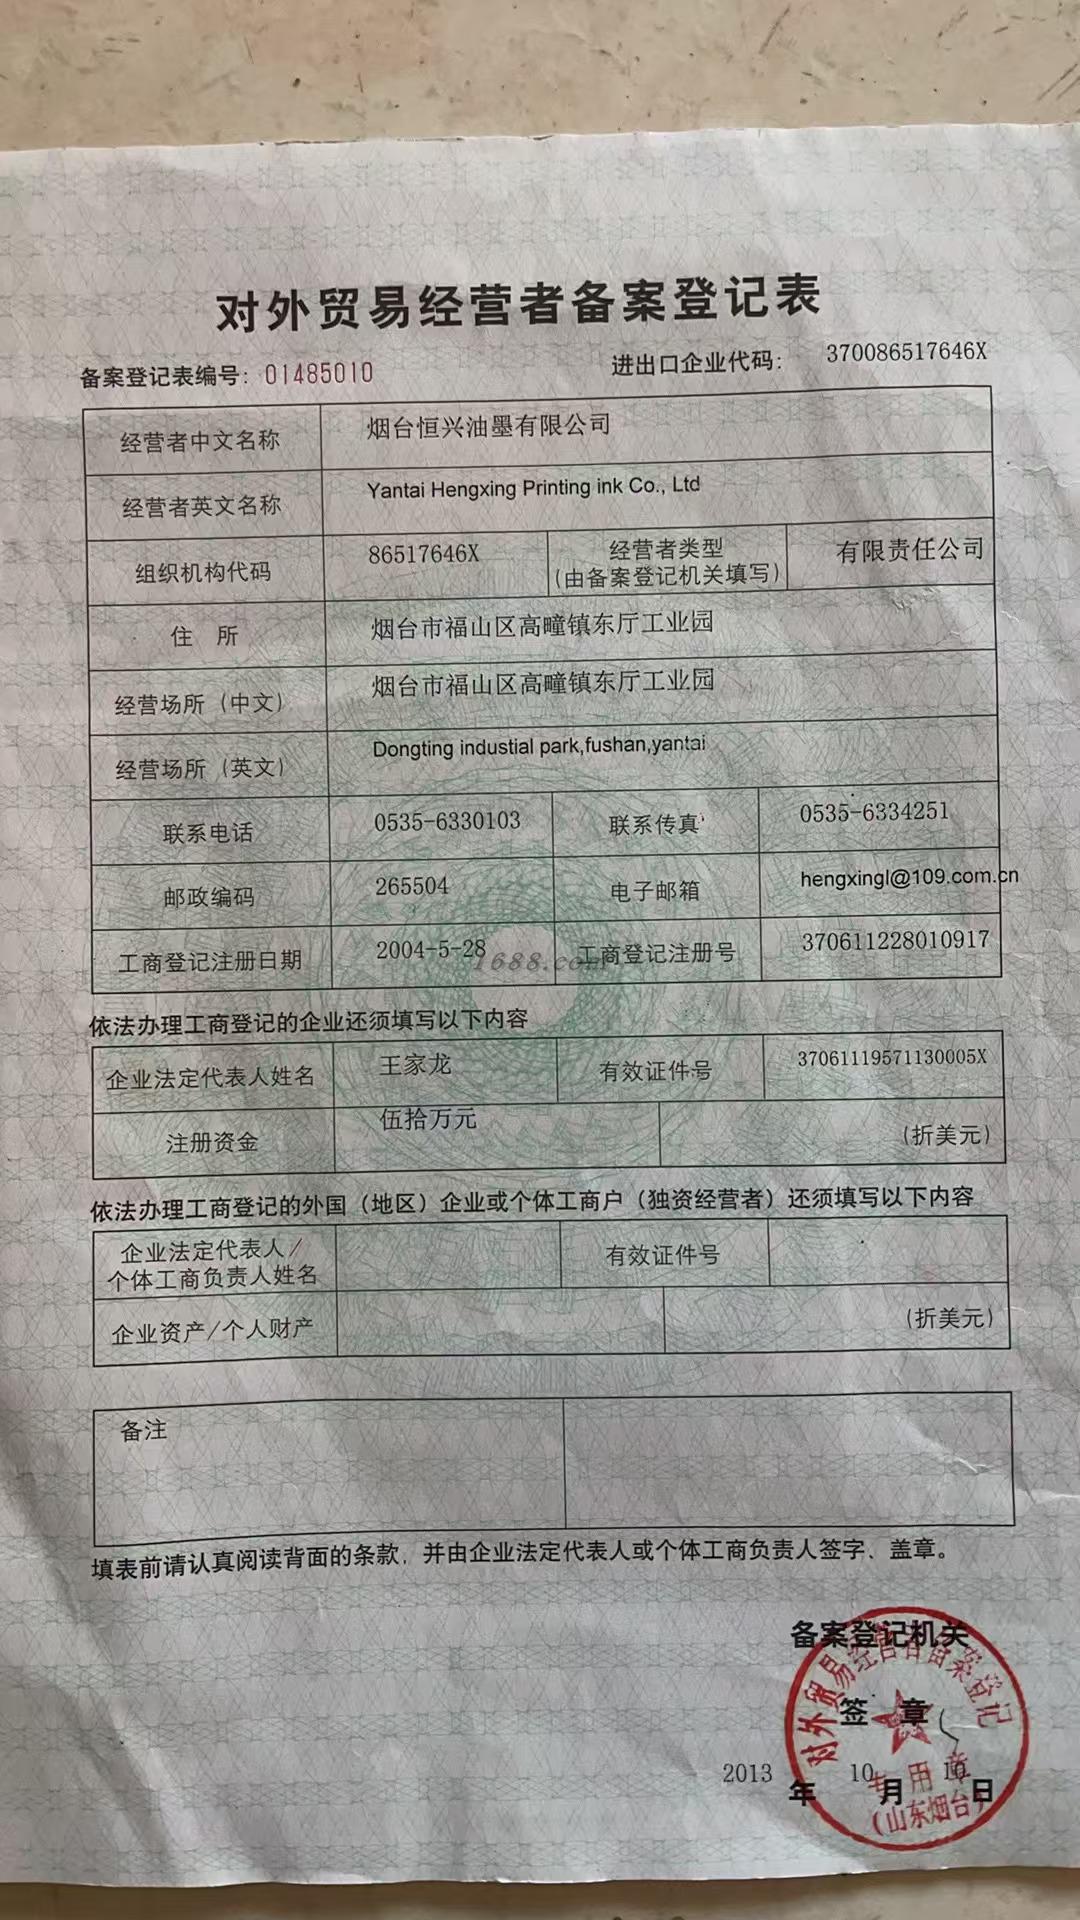 对外贸易经营者备案登记表
备案登记表编号: 01485010
进出口企业代码: 370086517646X
经营者中文名称 烟台恒兴油墨有限公司
经营者英文名称 Yantai Hengxing Printing ink Co., Ltd
组织机构代码 86517646X 经营者类型 有限责任公司
(由备案登记机关填写)
住 所 烟台市福山区高疃镇东厅工业园
经营场所（中文） 烟台市福山区高疃镇东厅工业园
经营场所（英文） Dongting industial park,fushan,yantai
联系电话 0535-6330103 联系传真 0535-6334251
邮政编码 265504 电子邮箱 hengxingl@109.com.cn
工商登记注册日期 2004-5-28 工商登记注册号 370611228010917
1688.com
依法办理工商登记的企业还须填写以下内容
企业法定代表人姓名 王家龙 有效证件号 37061119571130005X
注册资金 伍拾万元 (折美元)
依法办理工商登记的外国（地区）企业或个体工商户（独资经营者）还须填写以下内容
企业法定代表人/
个体工商负责人姓名 有效证件号
企业资产/个人财产 (折美元)
备注
填表前请认真阅读背面的条款，并由企业法定代表人或个体工商负责人签字、盖章。
备案登记机关
签 章
对外贸易经营者备案登记
专用章
（山东烟台）
2013 年 10 月 10 日